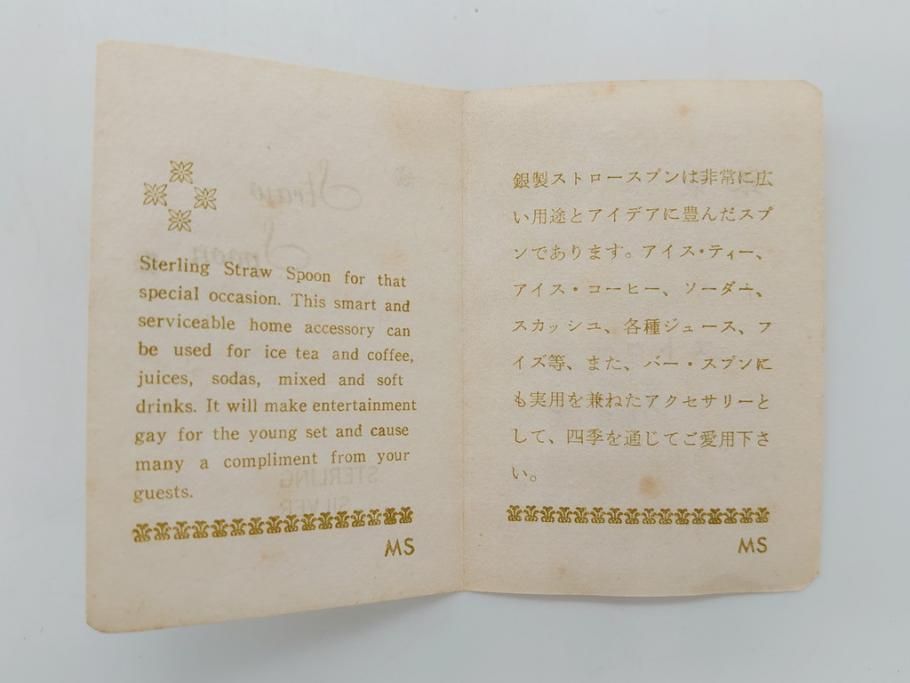 Sterling Straw Spoon for that
special occasion. This smart and
serviceable home accessory can
be used for ice tea and coffee,
juices, sodas, mixed and soft
drinks. It will make entertainment
gay for the young set and cause
many a compliment from your
guests.
MS
銀製ストロースプンは非常に広
い用途とアイデアに豊んだスプ
ンであります。アイス・ティー、
アイス・コーヒー、ソーダー、
スカッシュ、各種ジュース、フ
イズ等、また、バー・スプンに
も実用を兼ねたアクセサリーと
して、四季を通じてご愛用下さ
い。
MS
Straw
Spoon
STERLING
SILVER